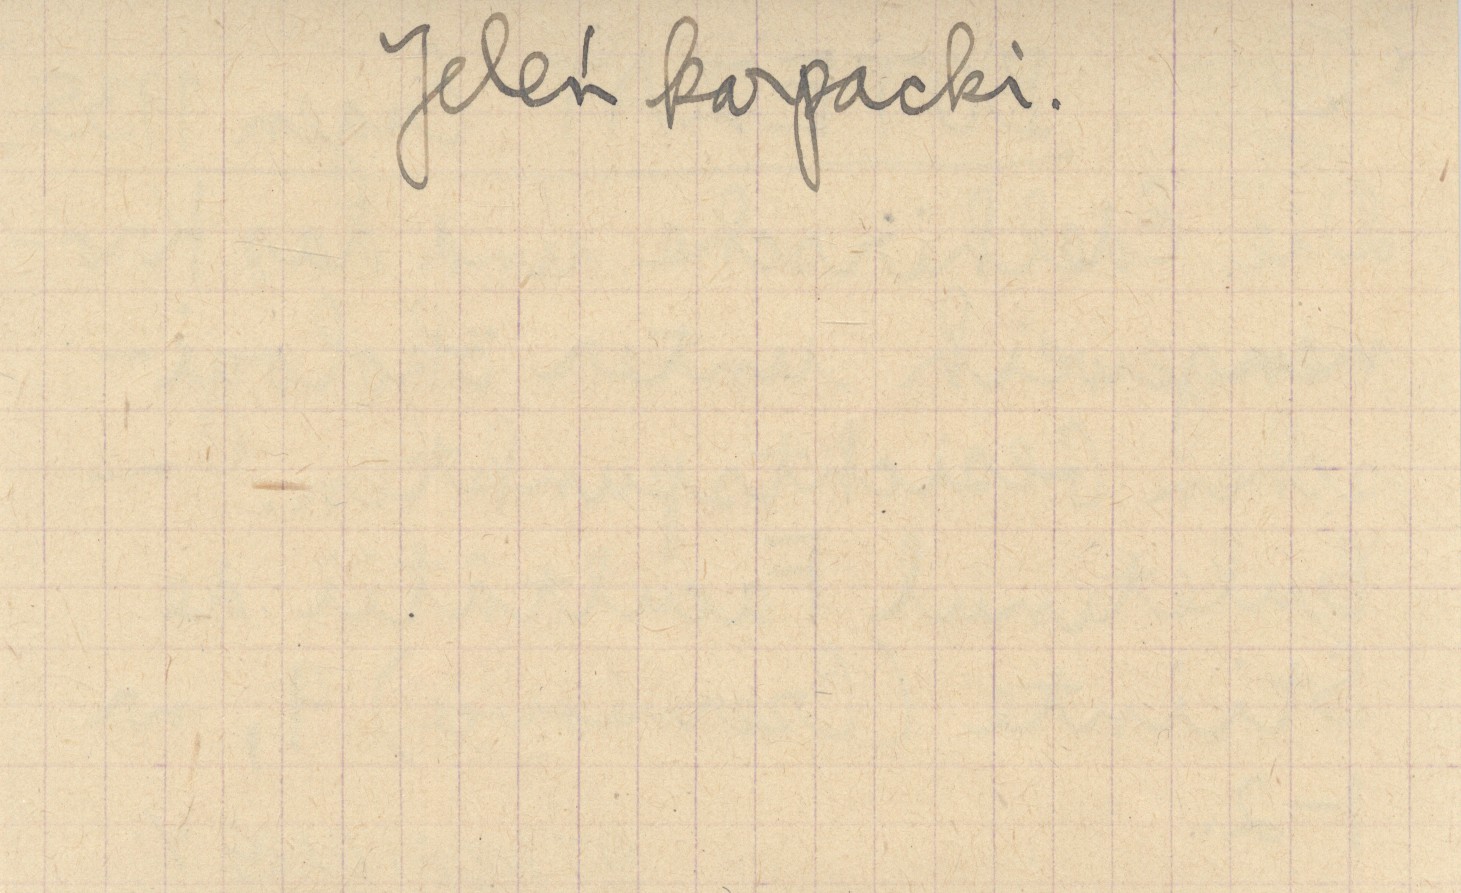 Jeleń karpacki.